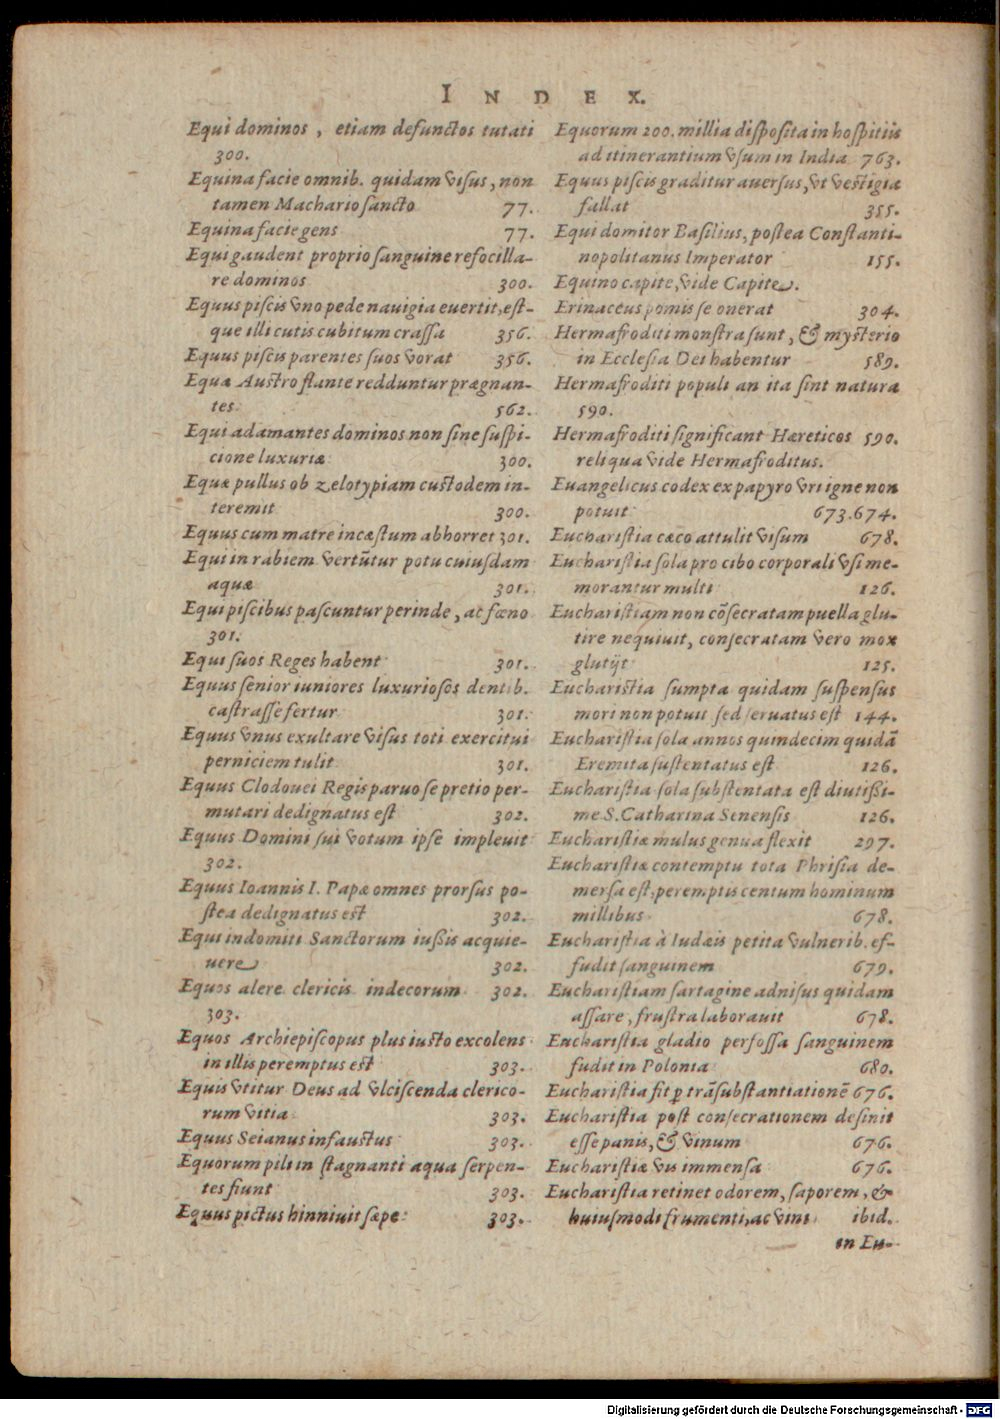 INDEX.
Equi dominos, etiam defunctos tutati
300.
Equina facie omnib. quidam visus, non
tamen Machario sancto 77.
Equina facie gens 77.
Equi gaudent proprio sanguine refocilla-
re dominos 300.
Equus piscis vno pede nauigia euertit, est-
que illi cutis cubitum crassa 356.
Equus piscis parentes suos vorat 356.
Equæ Austro flante redduntur prægnan-
tes 562.
Equi adamantes dominos non sine suspi-
cione luxuriæ 300.
Equæ pullus ob zelotypiam custodem in-
teremit 300.
Equus cum matre incæstum abhorret 301.
Equi in rabiem vertūtur potu cuiusdam
aquæ 301.
Equi piscibus pascuntur perinde, ac fœno
301.
Equi suos Reges habent 301.
Equus senior iuniores luxuriosos dentib.
castrasse fertur 301.
Equus vnus exultare visus toti exercitui
perniciem tulit 301.
Equus Clodouei Regis paruo se pretio per-
mutari dedignatus est 302.
Equus Domini sui votum ipse impleuit
302.
Equus Ioannis I. Papæ omnes prorsus po-
stea dedignatus est 302.
Equi indomiti Sanctorum iußis acquie-
uere 302.
Equos alere clericis indecorum 302.
303.
Equos Archiepiscopus plus iusto excolens
in illis peremptus est 303.
Equis vtitur Deus ad vlciscenda clerico-
rum vitia 303.
Equus Seianus infaustus 303.
Equorum pili in stagnanti aqua serpen-
tes fiunt 303.
Equus pictus hinniuit sæpe 303.
Equorum 200. millia disposita in hospitiis
ad itinerantium vsum in India 763.
Equus piscis graditur auersus, vt vestigia
fallat 355.
Equi domitor Basilius, postea Constanti-
nopolitanus Imperator 155.
Equino capite, vide Capite.
Erinaceus pomis se onerat 304.
Hermafroditi monstra sunt, & mysterio
in Ecclesia Dei habentur 589.
Hermafroditi populi an ita sint natura
590.
Hermafroditi significant Hæreticos 590.
reliqua vide Hermafroditus.
Euangelicus codex ex papyro vri igne non
potuit 673.674.
Eucharistia cæco attulit visum 678.
Eucharistia sola pro cibo corporali vsi me-
morantur multi 126.
Eucharistiam non cōsecratam puella glu-
tire nequiuit, consecratam vero mox
glutijt 125.
Eucharistia sumpta quidam suspensus
mori non potuit sed seruatus est 144.
Eucharistia sola annos quindecim quidā
Eremita sustentatus est 126.
Eucharistia sola substentata est diutißi-
me S. Catharina Senensis 126.
Eucharistiæ mulus genua flexit 297.
Eucharistiæ contemptu tota Phrisia de-
mersa est, peremptis centum hominum
millibus 678.
Eucharistia à Iudæis petita vulnerib. ef-
fudit sanguinem 679.
Eucharistiam sartagine adnisus quidam
assare, frustra laborauit 678.
Eucharistia gladio perfossa sanguinem
fudit in Polonia 680.
Eucharistia fit ꝑ trāsubstantiationē 676.
Eucharistia post consecrationem desinit
esse panis, & vinum 676.
Eucharistiæ vis immensa 676.
Eucharistia retinet odorem, saporem, &
huiusmodi frumenti, ac vini ibid.
in Eu-
Digitalisierung gefördert durch die Deutsche Forschungsgemeinschaft - DFG